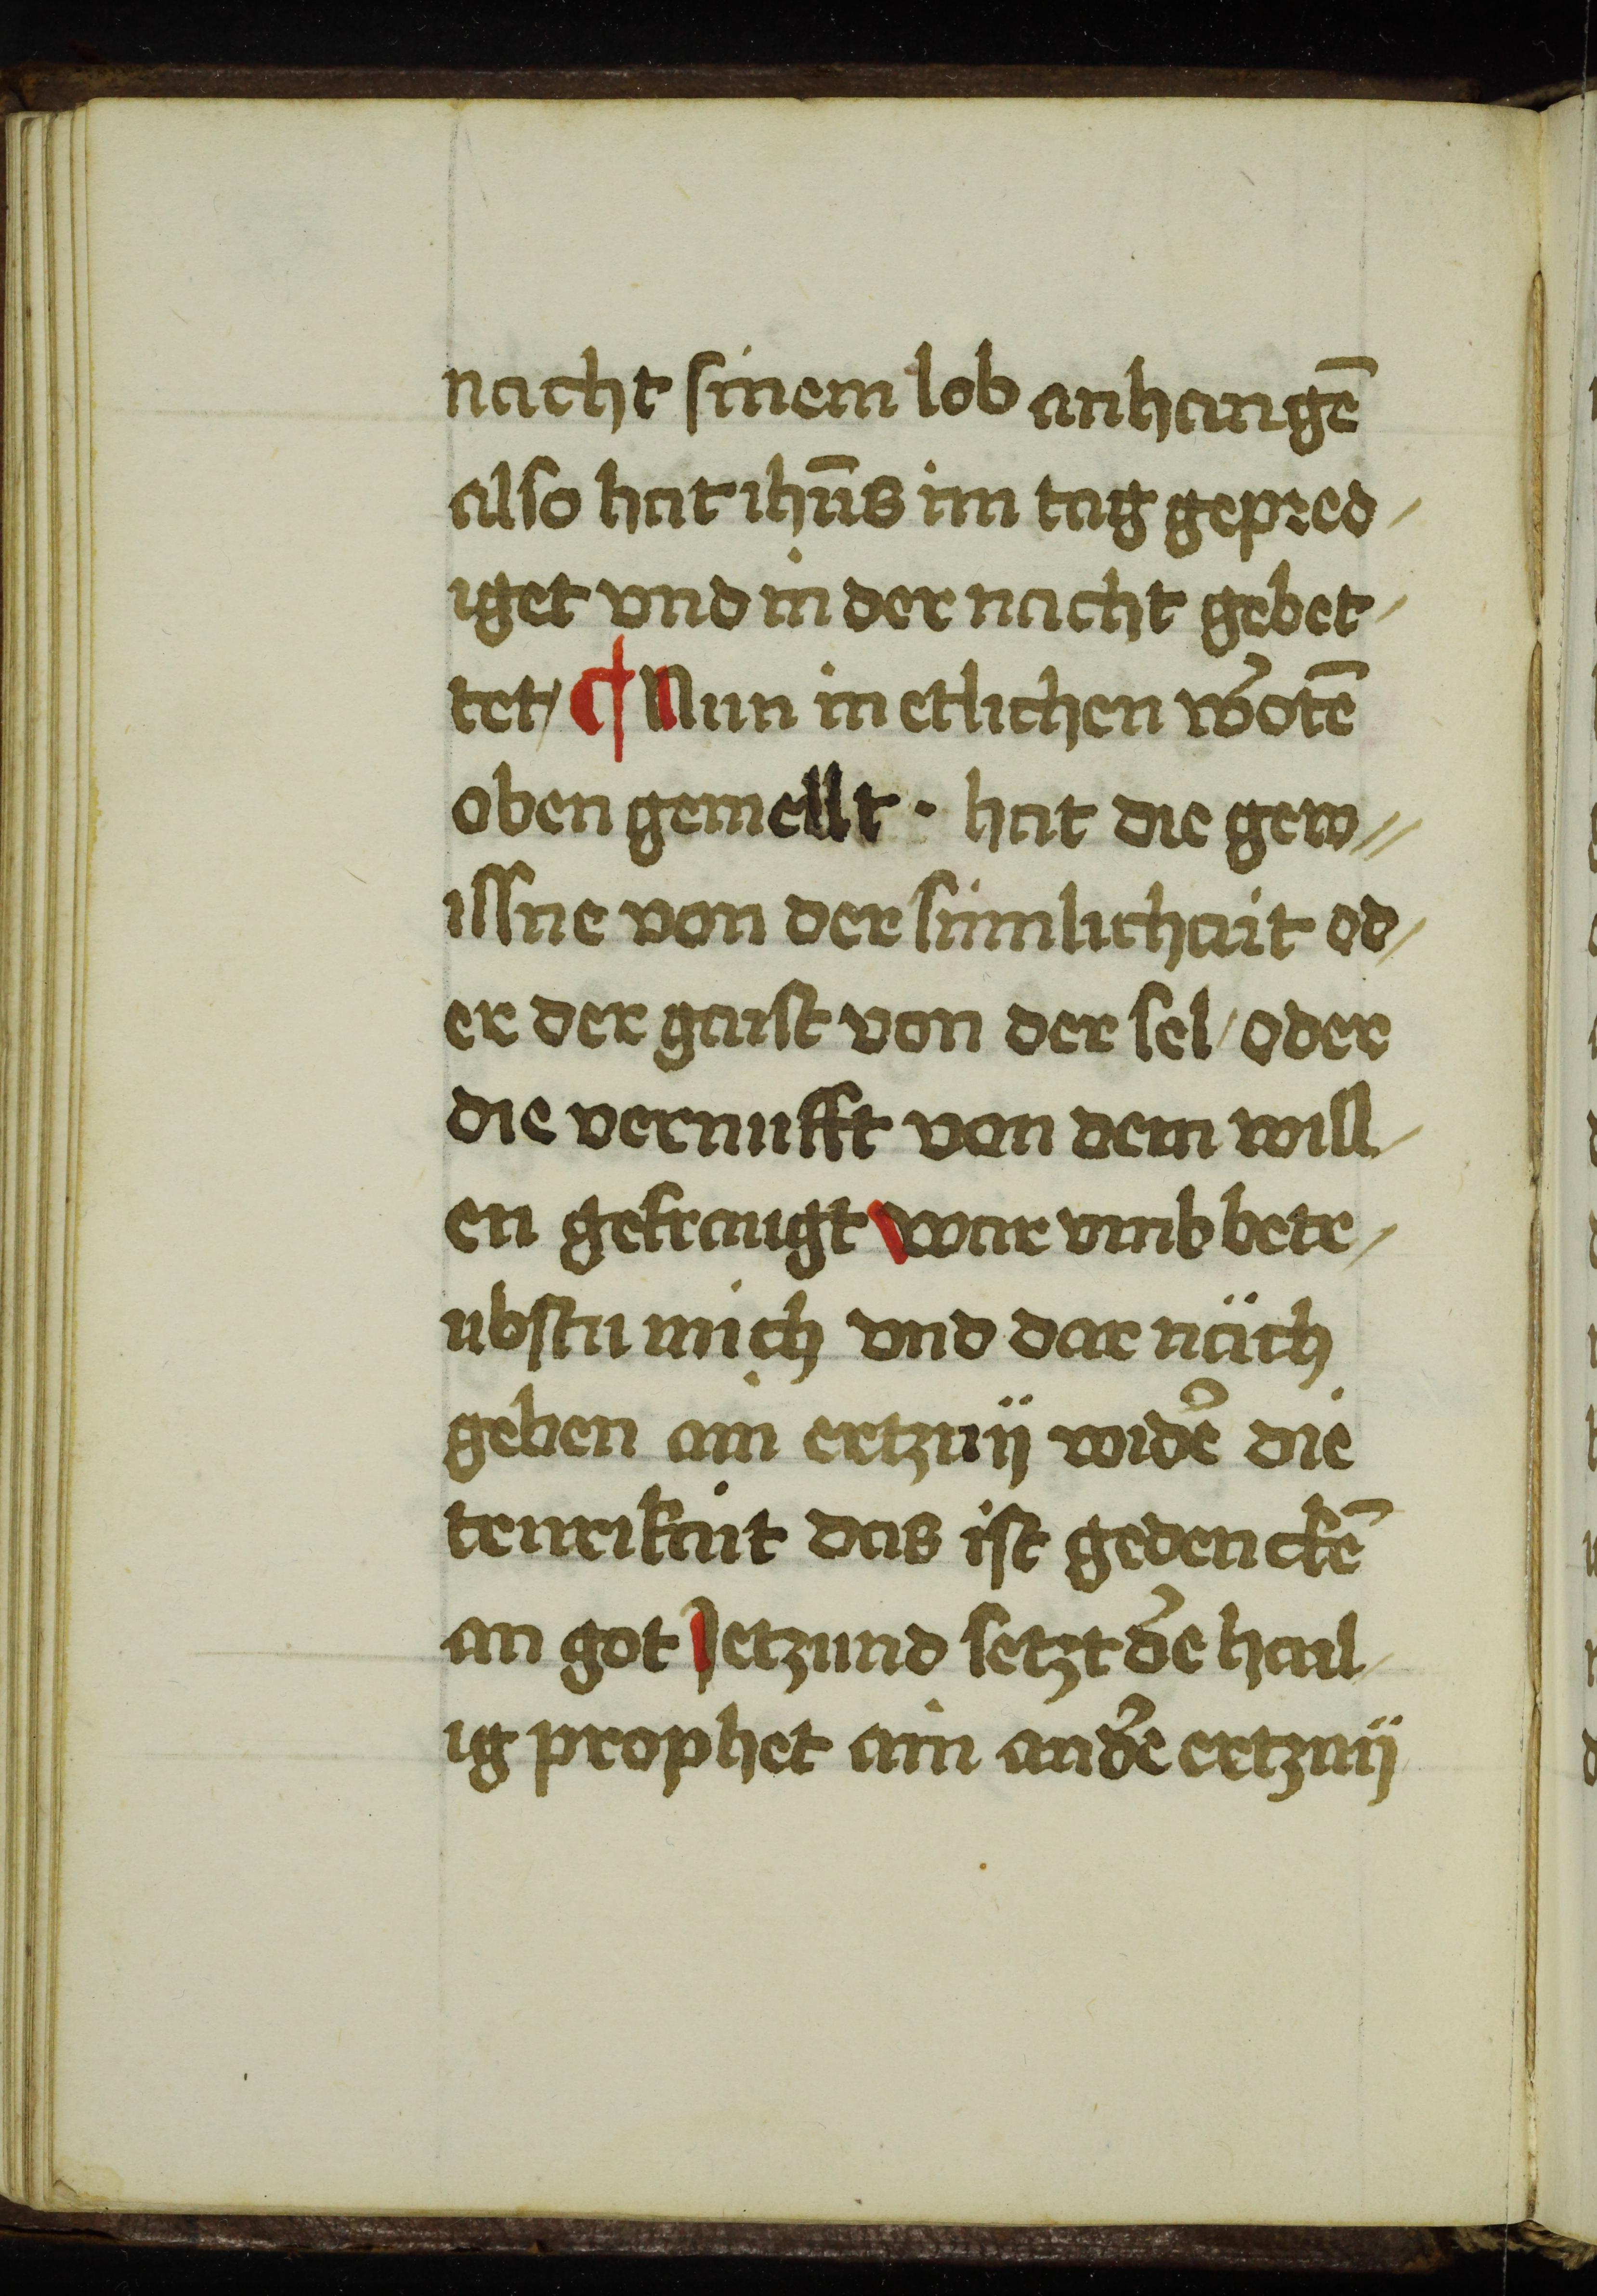 nacht sinem lob anhangē
also hat ihūs im tag gepred⸗
iget vnd in der nacht gebet⸗
tet / ¶ Nun in etlichen w͛otē
oben gemellt · hat die gew⸗
issne von der sinnlichait od⸗
er der gaist von der sel / oder
die vernufft von dem will⸗
en gefraugt War vmb betr⸗
ubstu mich vnd dar näch
geben ain ertznÿ wid͛e die
trurikait das ist gedenckē
an got Jetzund setzt d͛e hail⸗
ig prophet ain and͛e ertznÿ